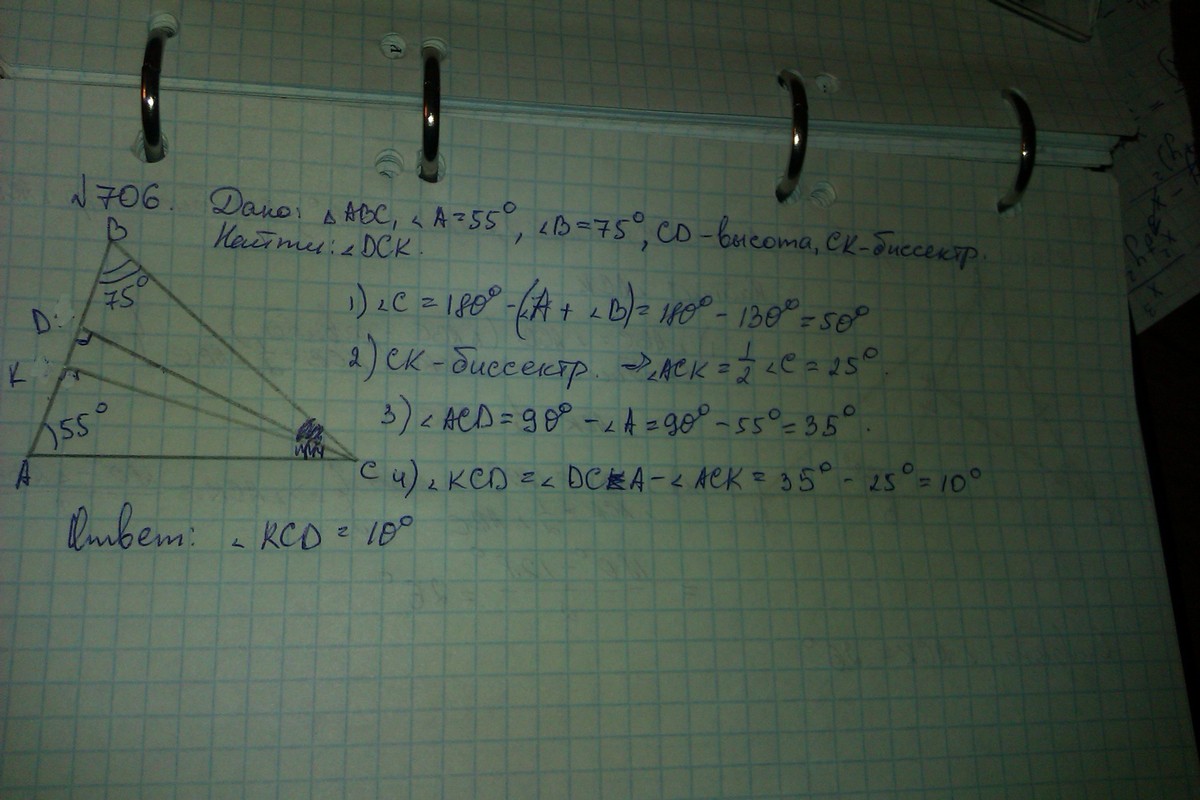 №706. Дано: △ABC, ∠A=55°, ∠B=75°, CD-высота, CK-биссектр.
Найти: ∠DCK.
B
75°
D
K
55°
A
C
1) ∠C = 180° - (∠A + ∠B) = 180° - 130° = 50°
2) CK - биссектр. ⇒ ∠ACK = 1/2 ∠C = 25°.
3) ∠ACD = 90° - ∠A = 90° - 55° = 35°.
4) ∠KCD = ∠DCA - ∠ACK = 35° - 25° = 10°
Ответ: ∠KCD = 10°